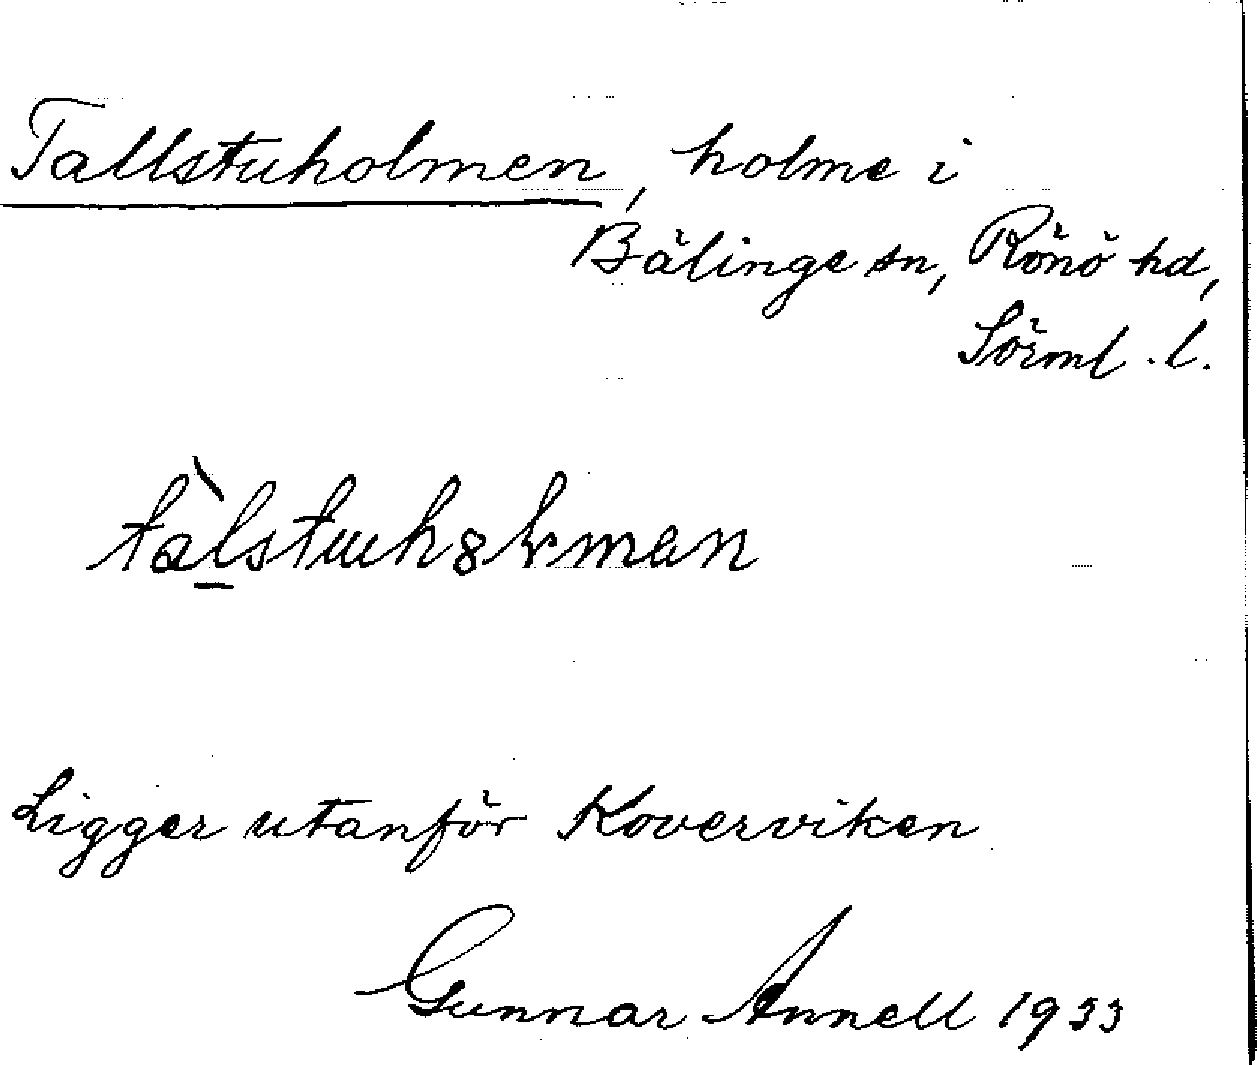 Tallstuholmen, holme i
Bälinge sn, Rönö hd,
Sörml. l.
Ligger utanför Koverviken
Gunnar Annell 1933